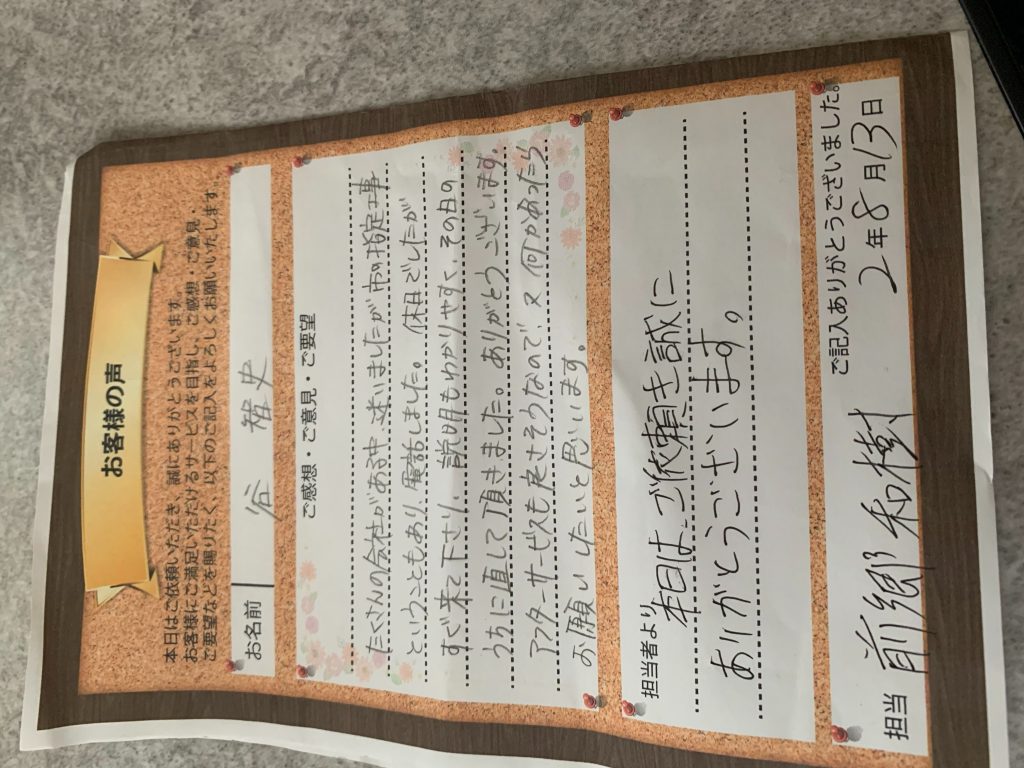 お客様の声
本日はご依頼いただき、誠にありがとうございます。
お客様にご満足いただけるサービスを目指し、ご感想・ご意見・
ご要望などを賜りたく、以下のご記入をよろしくお願いいたします。
お名前 谷 裕史
ご感想・ご意見・ご要望
たくさんの会社がある中、迷いましたが市の指定工事
ということもあり、電話しました。休日でしたが
すぐ来て下さり、説明もわかりやすく、その日の
うちに直して頂きました。ありがとうございます。
アフターサービスも充実そうなので、又何かあったら
お願いしたいと思います。
担当者より
本日は、ご依頼き誠に
ありがとうございます。
ご記入ありがとうございました。
担当 前郷和樹 2年8月13日